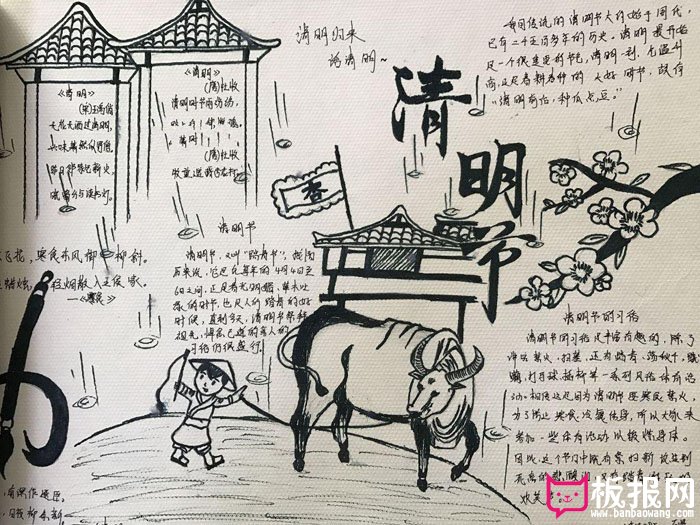 清明归来
话清明~
清明节
我国传统的清明节大约始于周代,
已有二千五百多年的历史。清明最开始
是一个很重要的节气,清明一到,气温升
高,正是春耕春种的大好时节,故有
“清明前后,种瓜点豆。”
《清明》
(宋)王禹偁
无花无酒过清明,
兴味萧然似野僧。
昨日邻家乞新火,
《清明》
(唐)杜牧
清明时节雨纷纷,
(唐)杜牧
牧童遥指杏花村。
香
清明节
清明节,又叫“踏青节”,
在每年的4月4日至
6日之间,正是春光明媚,草木吐
绿的时节,也是人们踏青的好
时候,直到今天,清明节祭拜
祖先,悼念已逝的亲人的
习俗仍很盛行。
飞花,寒食东风御柳斜。
蜡烛,轻烟散入五侯家。
——《寒食》
清明节的习俗
清明节的习俗是丰富有趣的,除了
讲究禁火、扫墓,还有踏青、荡秋千、蹴
鞠、打马球、插柳等一系列风俗体育活
动。相传这是因为清明节要寒食禁火,
为了防止寒食冷餐伤身,所以大家来
参加一些体育活动以锻炼身体。
因此,这个节日中既有祭扫新坟生别
死离的悲酸泪,又有踏青
欢笑
板报网
www.banbaowang.com